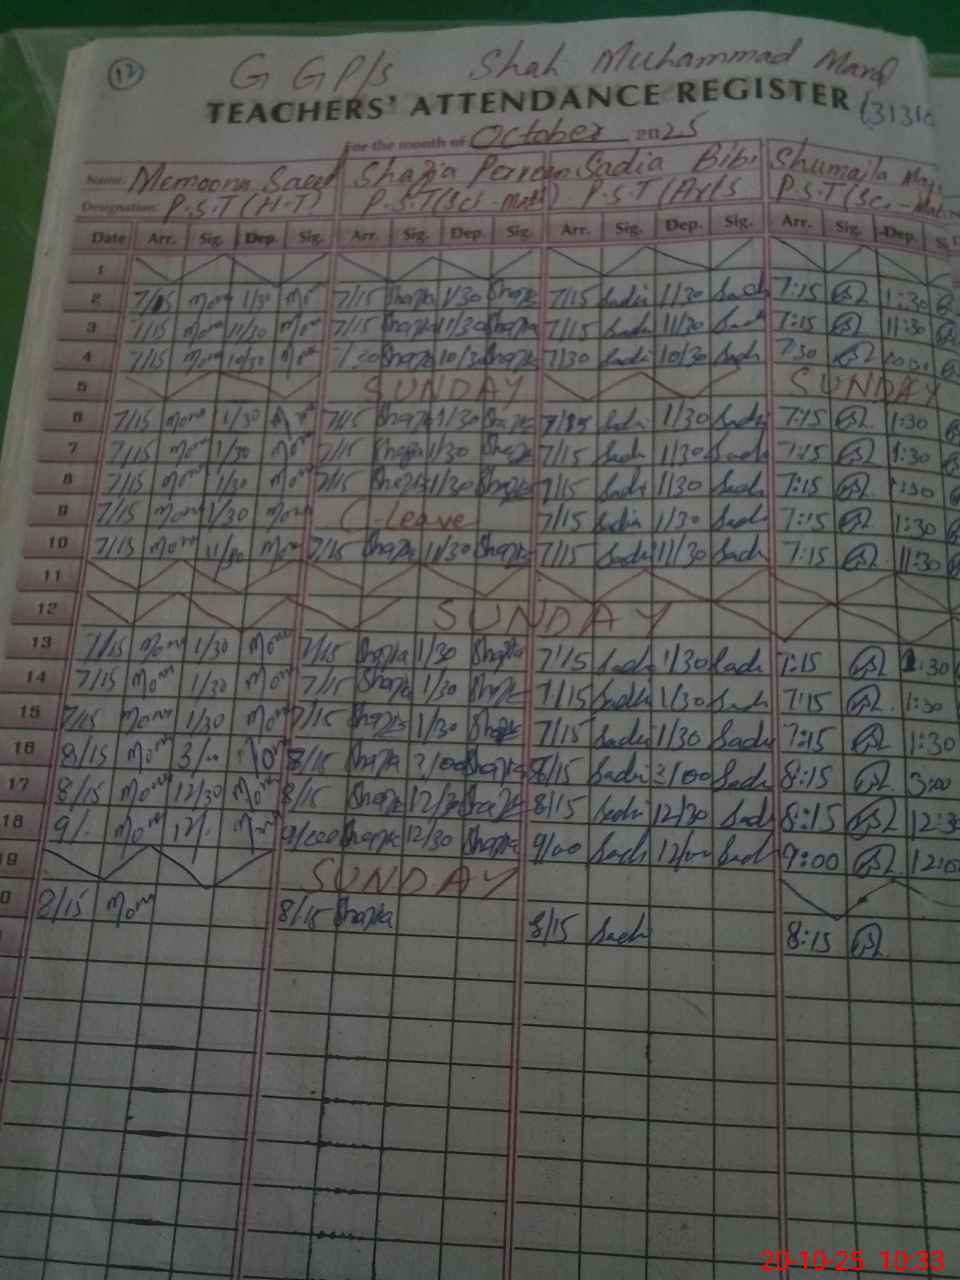 12
G GP/s Shah Muhammad Maral
TEACHERS' ATTENDANCE REGISTER (3131
For the month of October 2025
Name: Memoona Saeed Shazia Parveen Sadia Bibi Shumaila
Designation: P.S.T (H.T) P.S.T (Sci-Math) P.S.T (Arts P.S.T (Sci-Mat
Date Arr. Sig. Dep. Sig. Arr. Sig. Dep. Sig. Arr. Sig. Dep. Sig. Arr. Sig. Dep. Si
1
2 7/15 Mom 1/30 Mo 7/15 Shazia 1/30 Shazia 7/15 Sadi 1/30 Sadi 7:15 1:30
3 7/15 Mom 11/30 Mom 7/15 Shazia 1/30 Shazia 7/15 Sadi 11/30 Sadi 7:15 11:30
4 7/15 Mom 10/30 Mom Shazia 10/30 Shazia 7/30 Sadi 10/30 Sadi 7:30
5 SUNDAY SUNDAY
6 7/15 Mom 1/30 7/15 Shazia 1/30 Shazia Sadi 1/30 Sadi 7:15 1:30
7 7/15 Mom 1/30 Mom 7/15 Shazia 1/30 Shazia 7/15 Sadi 1/30 Sadi 7:15 1:30
8 7/15 Mom 1/30 Mom 7/15 Shazia 1/30 Shazia 7/15 Sadi 1/30 Sadi 7:15 1:30
9 7/15 Mom 1/30 Mom C-Leave 7/15 Sadia 1/30 Sadi 7:15 1:30
10 7/15 Mom 11/30 Mom 7/15 Shazia 11/30 Shazia 7/15 Sadi 11/30 Sadi 7:15 11:30
11
12 SUNDAY
13 7/15 Mom 1/30 Mom 7/15 Shazia 1/30 Shazia 7/15 Sadi 1/30 Sadi 7:15 1:30
14 7/15 Mom 1/30 Mom 7/15 Shazia 1/30 Shazia 7/15 Sadi 1/30 Sadi 7:15 1:30
15 7/15 Mom 1/30 Mom 7/15 Shazia 1/30 Shazia 7/15 Sadi 1/30 Sadi 7:15 1:30
16 8/15 Mom 3/00 8/15 Shazia 3/00 Shazia 8/15 Sadi 3/00 Sadi 8:15 3:00
17 8/15 Mom 12/30 Mom 8/15 Shazia 12/30 Shazia 8/15 Sadi 12/30 Sadi 8:15 12:30
18 9/. Mom 12/. Mom 9/00 Shazia 12/30 Shazia 9/00 Sadi 12/00 Sadi 9:00 12:00
19 SUNDAY
0 8/15 Mom 8/15 Shazia 8/15 Sadi 8:15
20-10-25 10:33